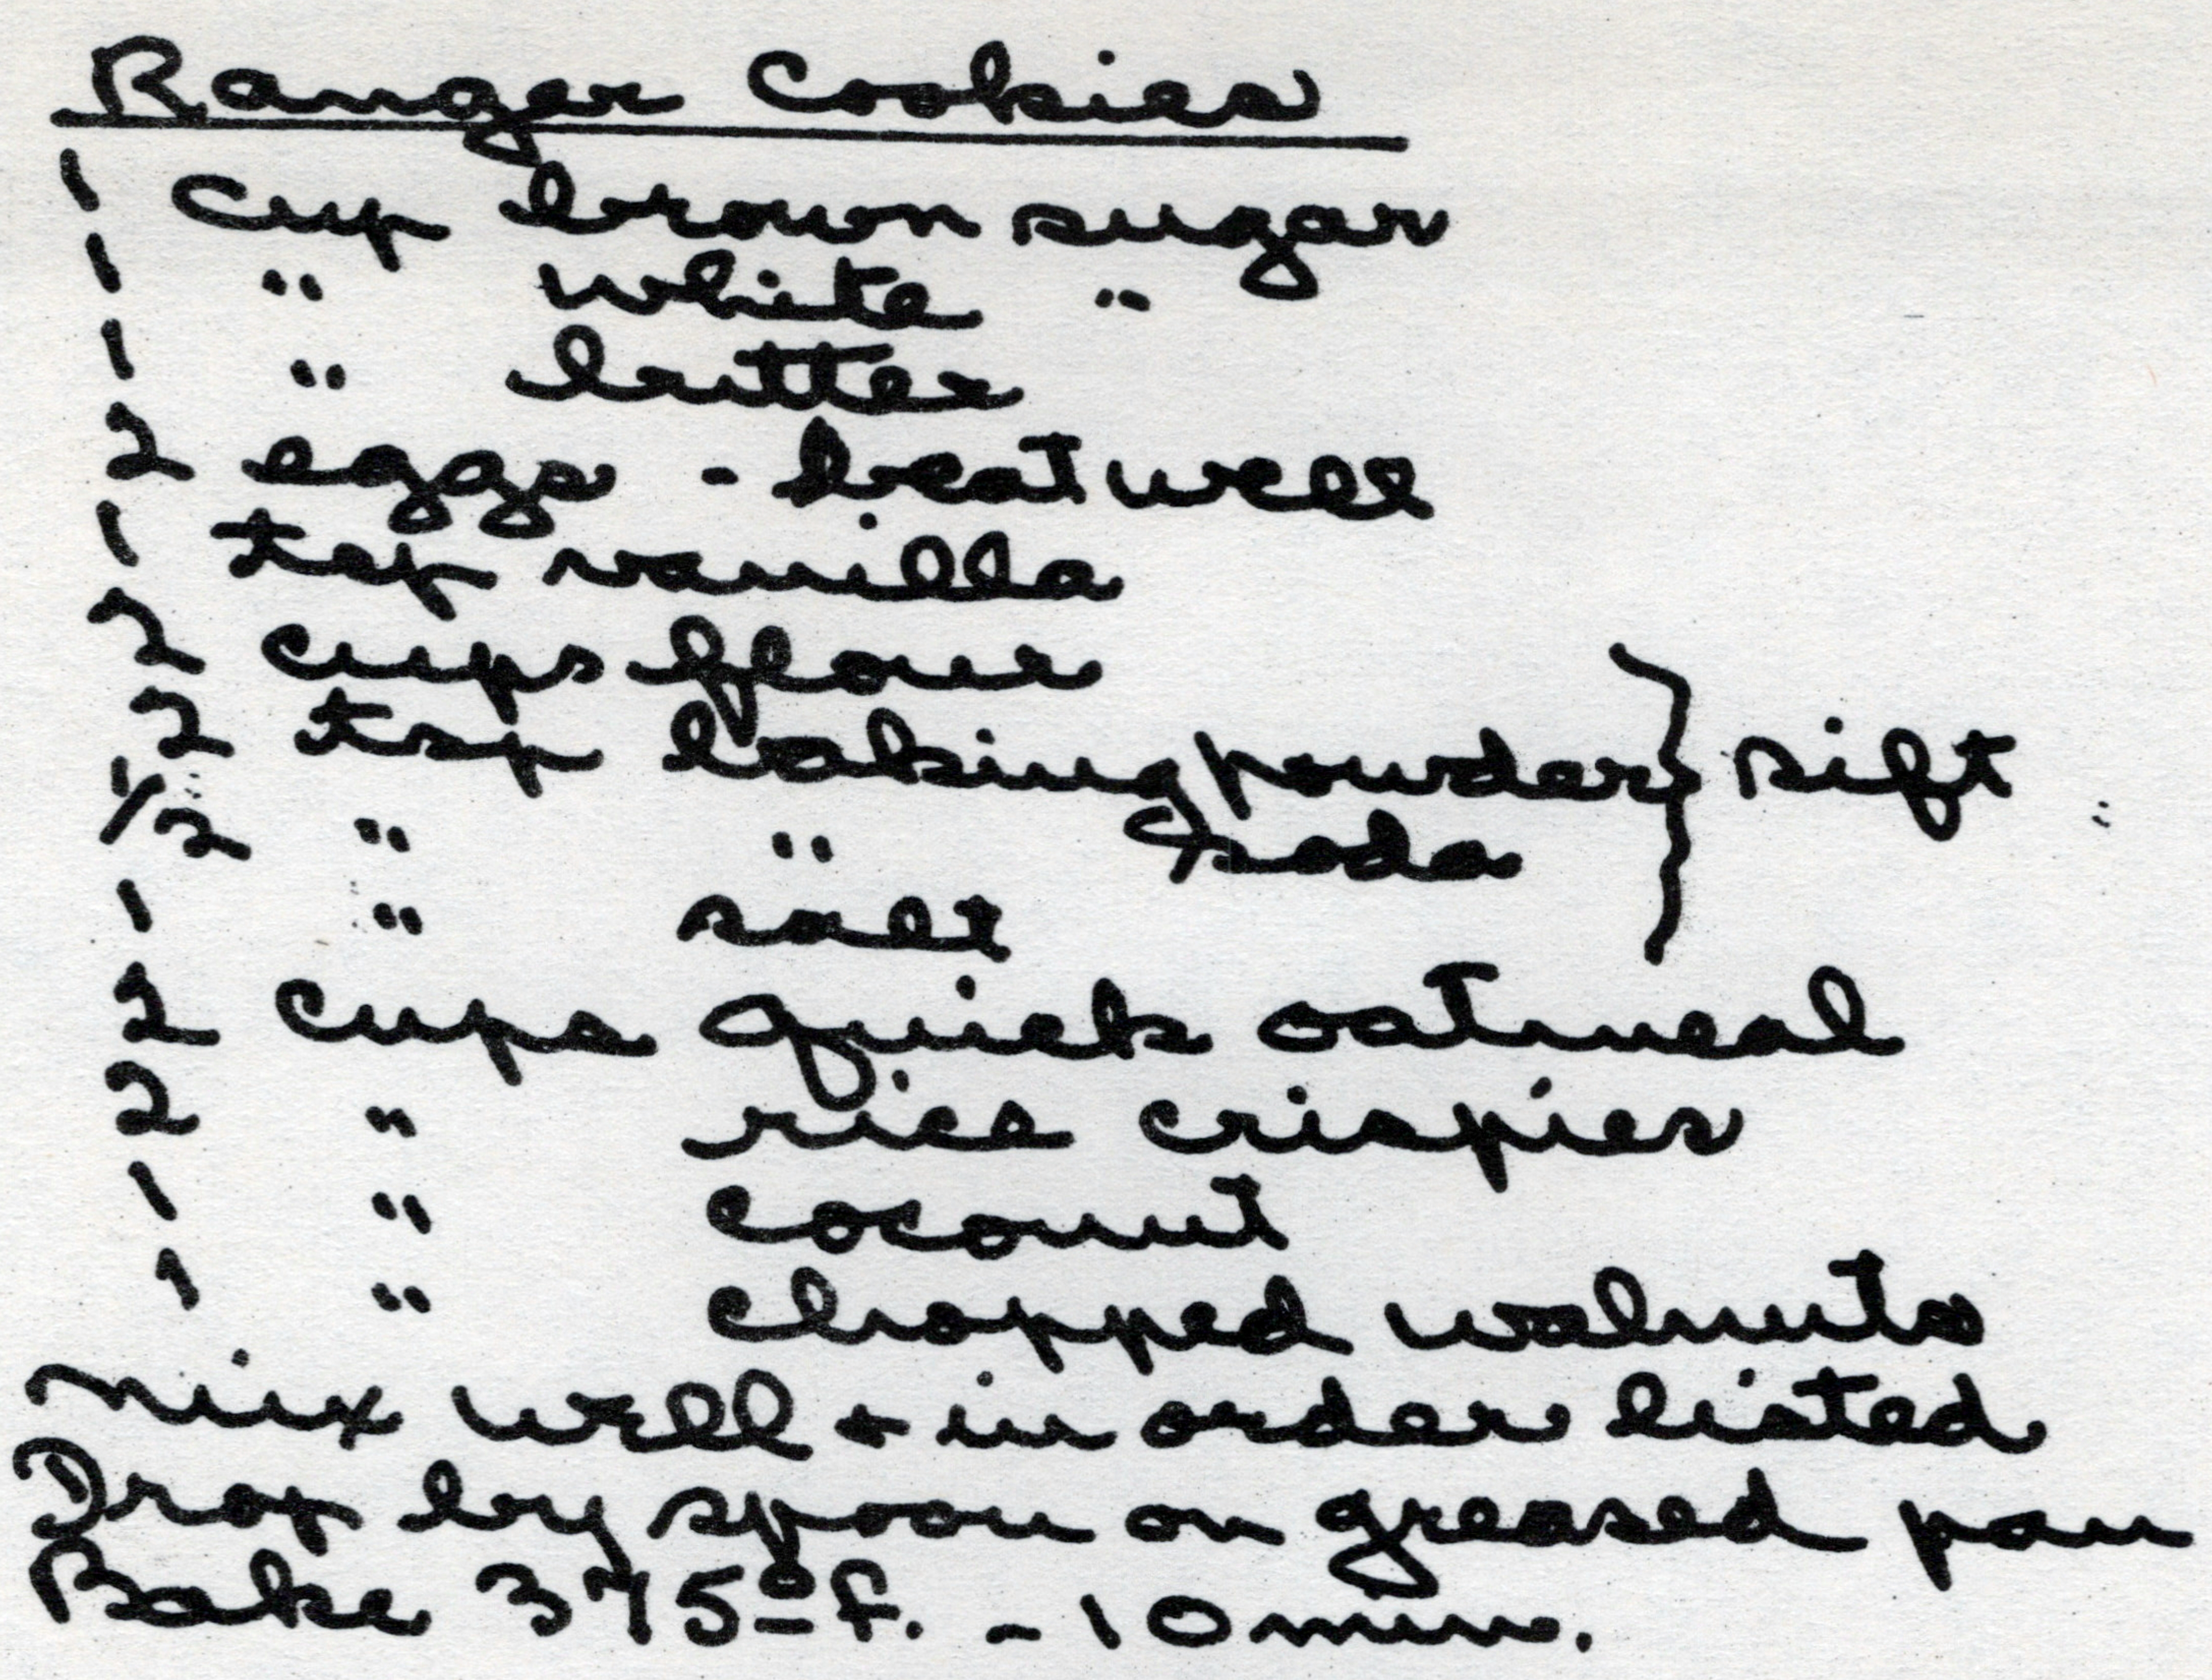 Ranger Cookies
1 cup brown sugar
1 " white "
1 " butter
2 eggs - beat well
1 tsp vanilla
2 cups flour
2 tsp baking powder } sift
1/2 " " soda
1 " salt
2 cups quick oatmeal
2 " rice crispies
1 " coconut
1 " chopped walnuts
Mix well + in order listed
Drop by spoon on greased pan
Bake 375º F. - 10 min.